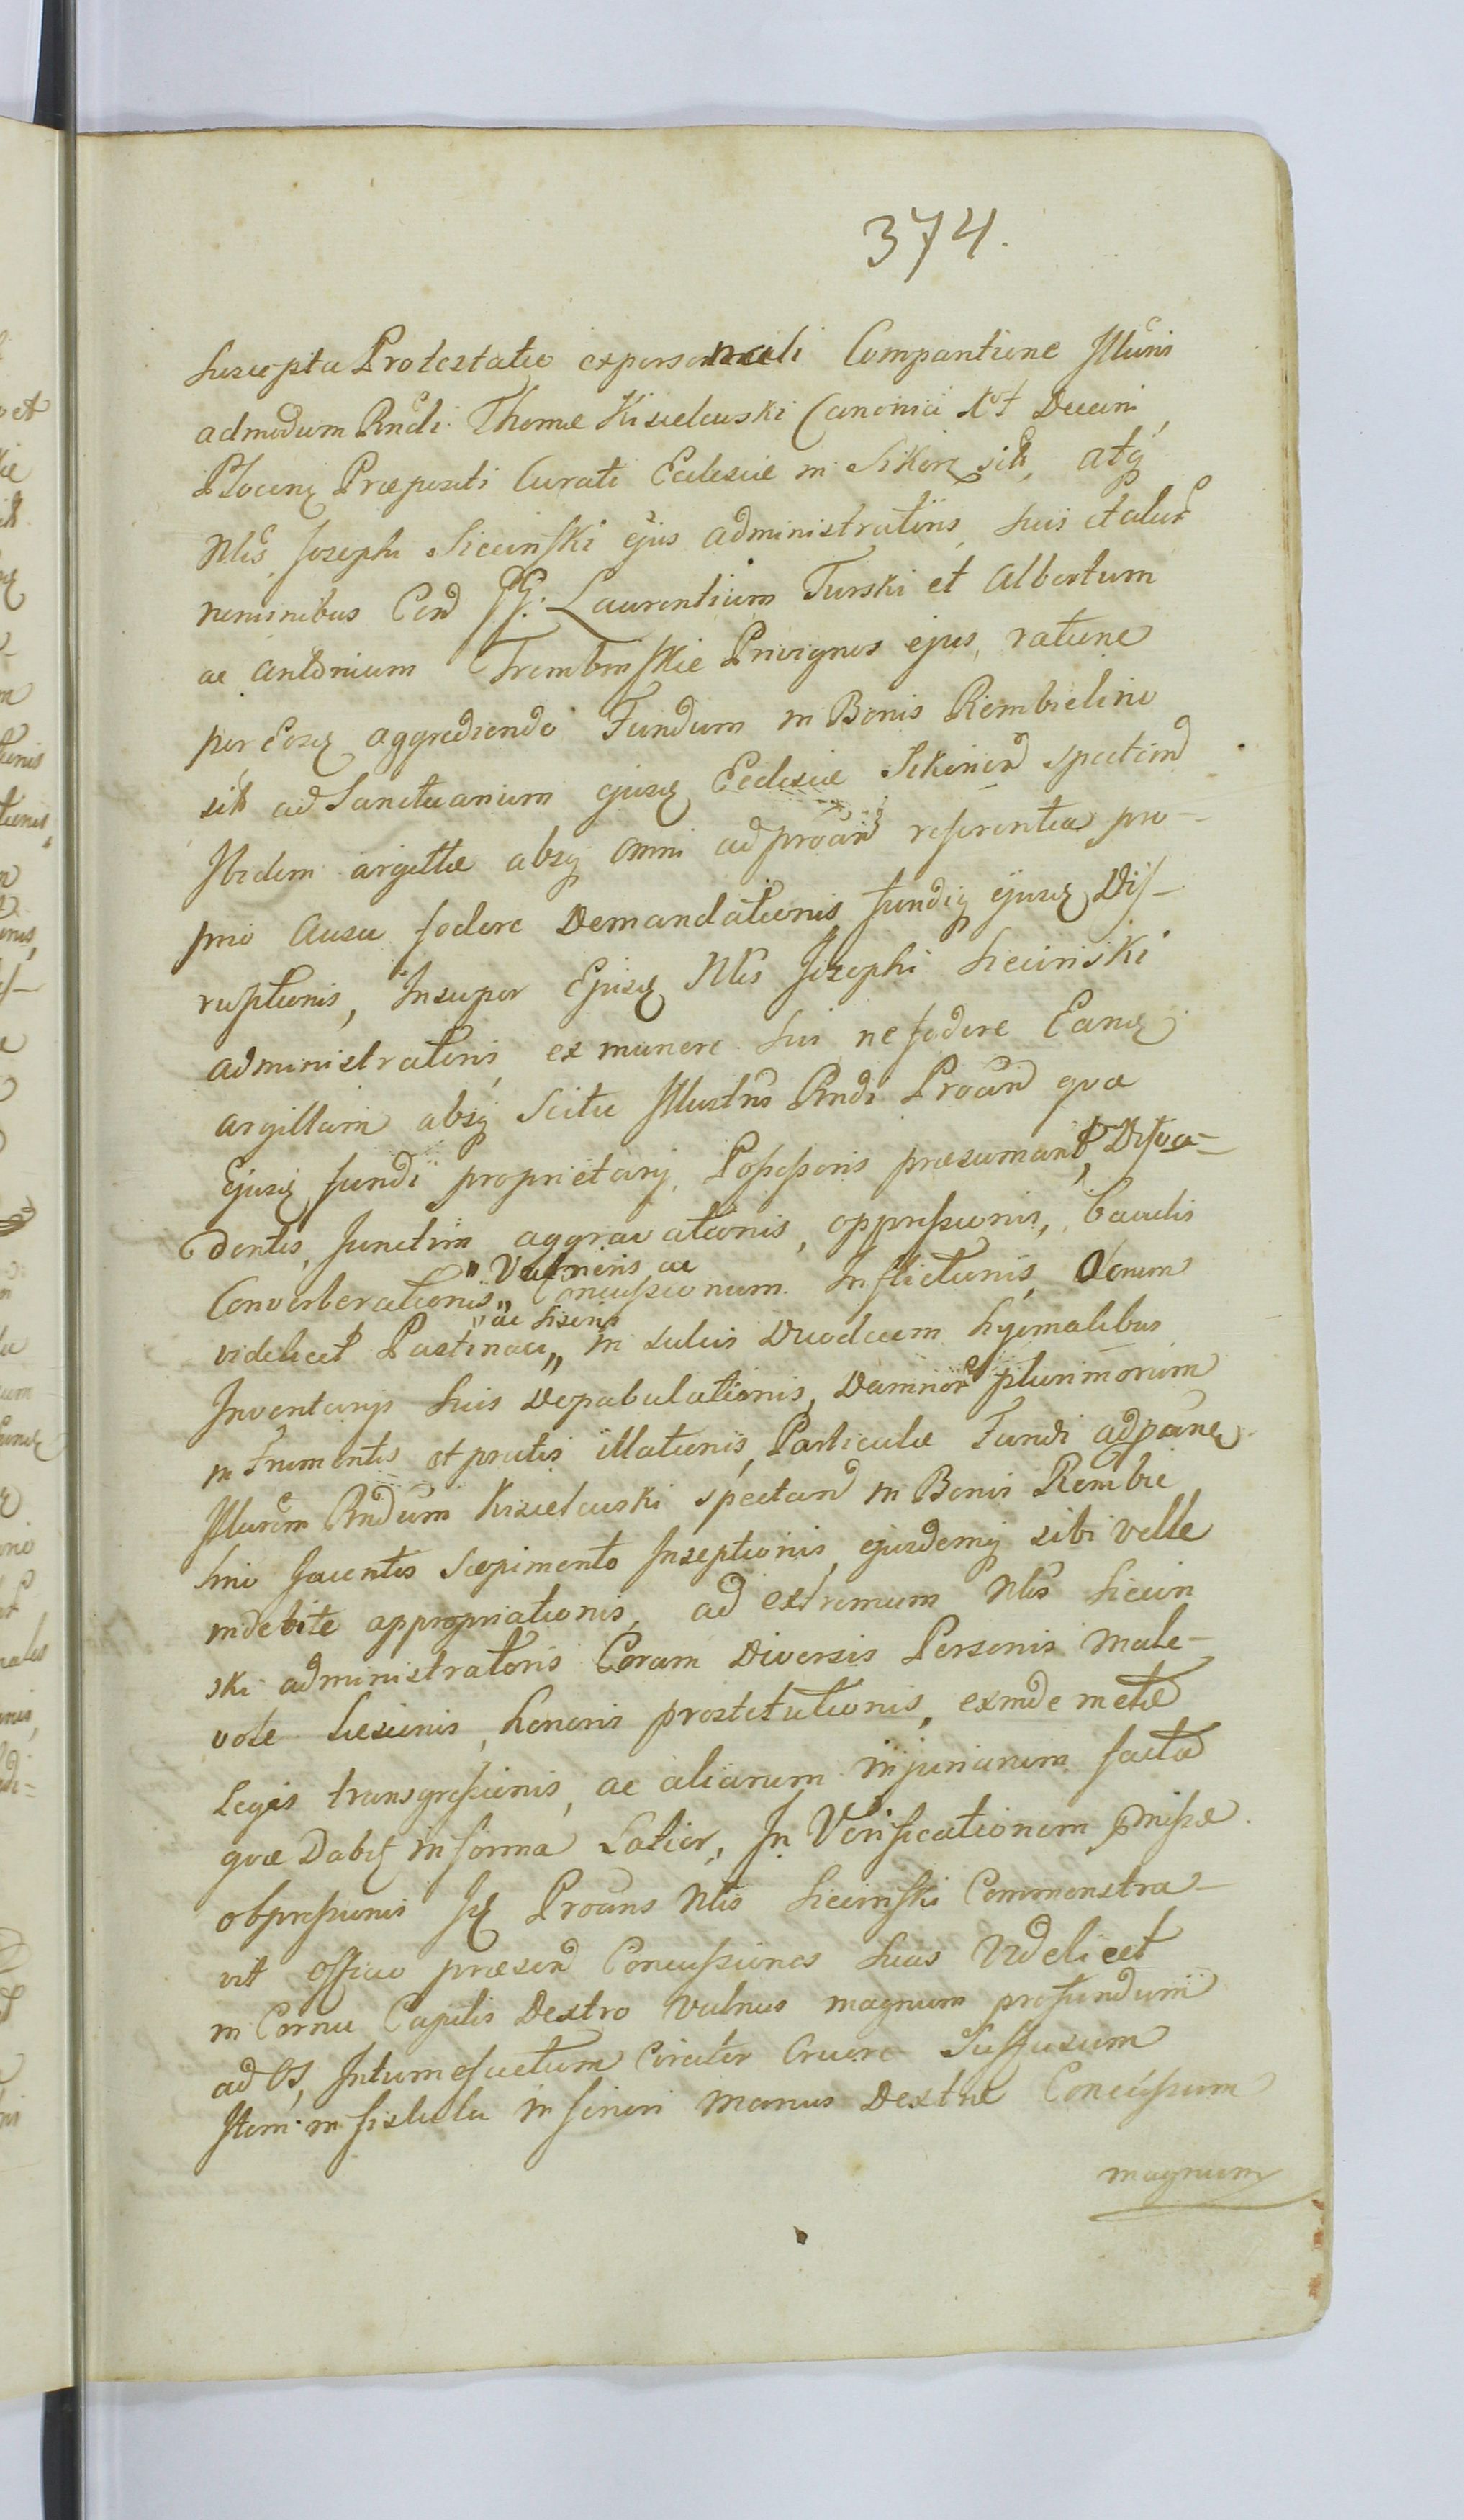 374.
Suscepta Protestatio expersonali Compantione Illuris
admodum Rndi Thomæ Kisielewski Canonici Decani
Plocen Præpositi Curati Ecclesiæ in Sikorz sitæ, atq
Nlis Josephi Siecinski ejus administratoris, suis et alior
nominibus Con GG. Laurentium Turski et Albertum
ac Antonium Trembinskie Privignos ejus, ratione
per Eosd aggrediendo Fundum in Bonis Rembielino
sit ad Sanctuarium ejusd Ecclesiæ Sikorien spectand
Ibidem argillæ absq omni ad proän referentia pro-
prio Ausu fodere Demandationis fundiq ejusd Dis-
ruptionis, Insuper Ejusd Nlis Josephi Siecinski
administratoris, ex munere sui ne fodere Eand
argillam absq Scitu Illustris Rndi Proän qva
Ejusd fundi proprietarij, Possessoris præsumant, Disva-
dentis, Junctim aggravationis, oppressionis, baculis
Converberationis „ Vulneris ac „ Concussionum Inflictionis, Olerum
videlicet Pastinaci „ ac Siseris „ in sulcis Duodecem hyemalibus
Inventarijs suis Depabulationis, Damnor plurimorum
in Frumentis et pratis illationis, Particulæ Fundi ad pänem
Illurem Rndum Kisielewski spectand in Bonis Rembie
lino Jacentis Sepimento Inseptionis, ejusdemq sibi velle
indebite appropriationis, ad extremum Nlis Siecin
ski administratoris Coram Diversis Personis male-
vole Læsionis, honoris prostitutionis, exinde metæ
Legis transgressionis, ac aliarum injuriarum facta
qvæ Dabit in forma Latior, In Verificationem pmissæ
obpressionis Id Proäns Nlis Siecinski Commonstra-
vit officio præsen Concussiones suas Videlicet
in Cornu Capitis Dextro vulnus magnum profundum
ad os, Intumefactum Circiter Cruore Suffusum
Item in fistula inferiori manus Dextræ Concussum
magnum